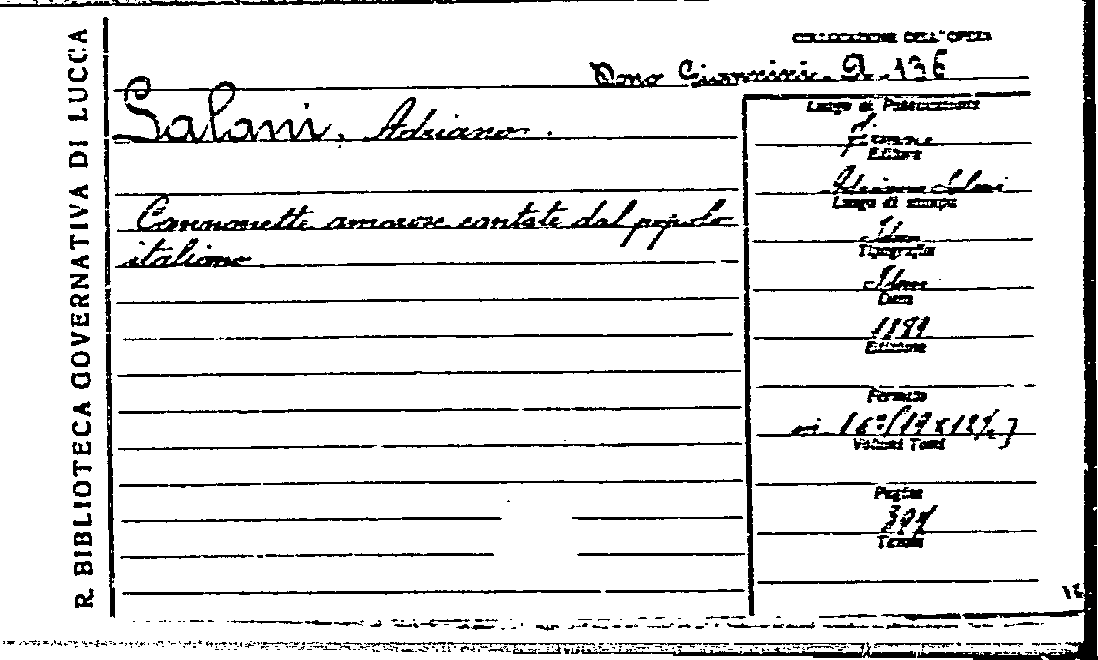 R. BIBLIOTECA GOVERNATIVA DI LUCCA
COLLOCAZIONE DELL'OPERA
Dono Giannini. A. 136
Salani, Adriano.
Canzonette amorose cantate dal popolo
italiano
Luogo di Pubblicazione
Firenze
Editore
Adriano Salani
Luogo di stampa
Idem
Tipografia
Idem
Data
1899
Edizione
Formato
in 16º
Volumi Tomi
Pagine
Tavole